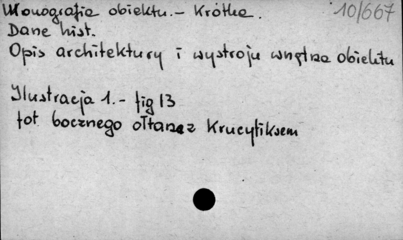 Monografia obiektu. - Krótka.
10/667
Dane hist.
Opis architektury i wystroju wnętrza obiektu
Ilustracja 1. - fig 13
fot. bocznego ołtarza z Krucyfiksem